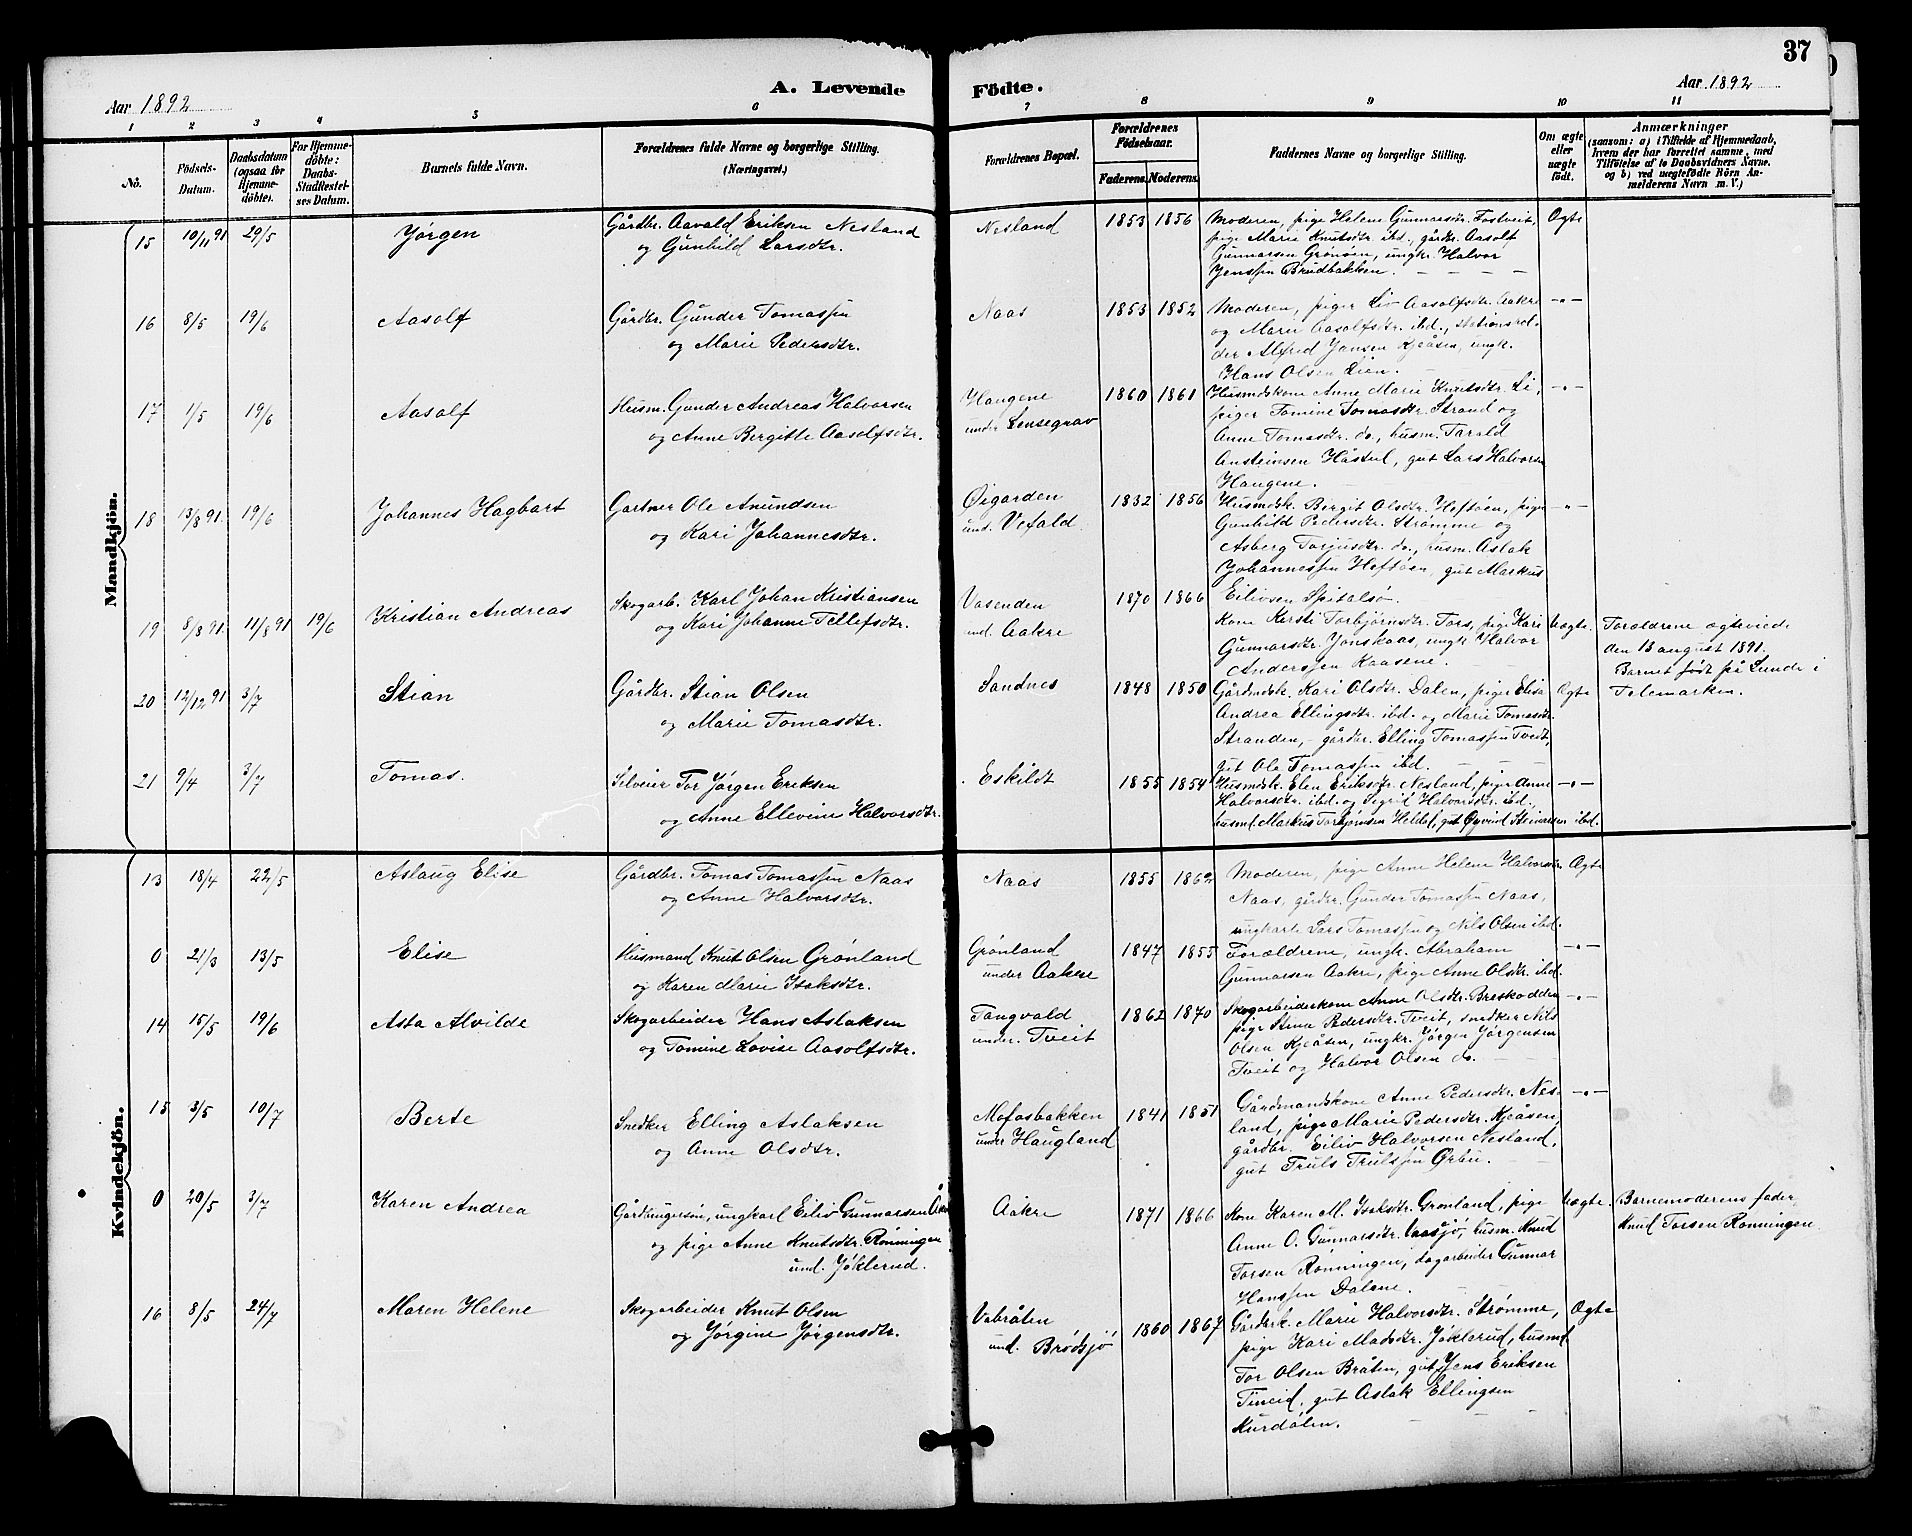 37
Aar 1892
A. Levende
Fødte.
Aar 1892
1 2 3 4 5 6 7 8 9 10 11
No.
Fødsels-Datum.
Daabsdatum (ogsaa for Hjemmedøbte).
For Hjemmedøbte: Daabs-Stadfæstelses Datum.
Barnets fulde Navn.
Forældrenes fulde Navne og borgerlige Stilling. (Næringsvei.)
Forældrenes Bopæl.
Forældrenes Fødselsaar.
Faderens. Moderens.
Faddernes Navne og borgerlige Stilling.
Om ægte eller uægte født.
Anmærkninger
(saasom: a) i Tilfælde af Hjemmedaab, hvem der har forrettet samme, med Tilføielse af to Daabsvidners Navne, og b) ved uægtefødte Börn Anmelderens Navn m. V.)
Mandkjön.
15 10/11 91 29/5 Jørgen
Gårdbr. Aavald Eriksen Nesland
og Gunhild Larsdtr.
Nesland 1853 1856
Moderen, pige Helene Gunnarsdtr. Fostveit,
pige Marie Knutsdtr. ibd., gårdbr. Aasolf
Gunnarsen Grønøen, ungkr. Halvor
Jenssen Brudbakken.
Ægte
16 8/5 19/6 Aasolf
Gårdbr. Gunder Tomassen
og Marie Pedersdtr.
Naas 1853 1852
Moderen, piger Liv Aasolfsdtr. Aakre
og Marie Aasolfsdtr. ibd., stationshol-
der Alfred Jansen Kjeåsen, ungk.
Hans Olsen Lien.
-"-
17 1/5 19/6 Aasolf
Husm. Gunder Andreas Halvorsen
og Anne Bergitte Aasolfsdtr.
Haugene
under Lensegrav
1860 1861
Husmdskone Anne Marie Knutsdtr. Li,
piger Tomine Tomasdtr. Strand og
Anne Tomasdtr. do., husm. Tarald
Ansteinsen Håstul, gut Lars Halvorsen
Haugene.
-"-
18 13/8 91. 19/6 Johannes Hagbart
Gartner Ole Amundsen
og Kari Johannesdtr.
Øigarden
und. Vefald.
1832 1856
Husmdsk. Bergit Olsdtr. Heftøen, pige
Gunhild Pedersdtr. Strømme og
Asberg Torjusdtr. do., husm. Aslak
Johannessen Heftøen, gut Markus
Eilivsen Spitalsø.
-"-
19 8/8 91. 11/8 91 19/6 Kristian Andreas
Skogarb. Karl Johan Kristiansen
og Kari Johanne Tellefsdtr.
Vasenden
und. Aakre
1870 1866
Kone Kersti Torbjørnsdtr. Tors, pige Kari
Gunnarsdtr. Jonskaas, ungk. Halvor
Anderssen Kaasene.
Uægte.
Forældrene ægteviede
den 13 august 1891.
Barnet født på Lunde i
Telemarken.
20 12/12 91 3/7 Stian
Gårdbr. Stian Olsen
og Marie Tomasdtr.
Sandnes 1848 1850
Gårdmdsk. Kari Olsdtr. Dalen, piger Elisa
Andrea Ellingsdtr. ibd. og Marie Tomasdtr.
Stranden, gårdbr. Elling Tomassen Tveit,
gut Ole Tomassen ibd.
Ægte
21 9/4 3/7 Tomas.
Tor Jørgen Eriksen
og Anne Ellevine Halvorsdtr.
Eskildt 1855 1854
Husmdsk. Elen Eriksdtr. Nesland, piger Anne
Halvorsdtr. ibd. og Sigrid Halvorsdtr. ibd.,
husmd. Markus Torbjørnsen Heldøl, gut Øyvind Steinarsen ibd.
-"-
Kvindekjön.
13 18/4 22/5 Aslaug Elise
Gårdbr. Tomas Tomassen Naas
og Anne Halvorsdtr.
Naas 1855 1862
Moderen, pige Anne Helene Halvorsdtr.
Naas, gårdbr. Gunder Tomassen Naas,
ungkarle Lars Tomassen og Nils Olsen ibd.
Ægte
0 21/3 13/5 Elise
Husmand Knut Olsen Grønland
og Karen Marie Isaksdtr.
Grønland
under Aakre
1847 1855
Forældrene, ungk. Abraham
Gunnarsen Aakre, pige Anne Olsdtr. ibd.
-"-
14 15/5 19/6 Asta Alvilde
Skogarbeider Hans Aslaksen
og Tomine Lovise Aasolfsdtr.
Tangvald
under. Tveit
1862 1870
Skogarbeiderkone Anne Olsdtr. Breskodden
pige Stine Pedersdtr. Tveit, snedker Nils
Olsen Kjeåsen, ungkr. Jørgen Jørgensen
Tveit og Halvor Olsen do.
-"-
15 3/5 10/7 Berte
Snedker Elling Aslaksen
og Anne Olsdtr.
Mofosbakken
under Haugland
1841 1851
Gårdmandskone Anne Pedersdtr. Nes-
land, pige Marie Pedersdtr. Kjeåsen,
gårdbr. Eiliv Halvorsen Nesland,
gut Truls Trulssen Ørbu.
-"-
0 20/5 3/7 Karen Andrea
Gårdbrugersøn, ungkarl Eiliv Gunnarsen
og pige Anne Knutsdtr. Rønningen
und. Jøklerud.
Aakre 1871 1866
Kone Karen M. Isaksdtr. Grønland, pige
Anne O. Gunnarsdtr. Vaasjø, husm. Knud
Torsen Rønningen, dagarbeider Gunnar
Hanssen Dalene.
Uægte.
Barnemoderens fader
Knud Torsen Rønningen.
16 8/5 24/7 Maren Helene
Skogarbeider Knut Olsen
og Jørgine Jørgensdtr.
Vabråten
und. Brødsjø
1860 1867
Gårdbrk. Marie Halvorsdtr. Strømme,
pige Kari Madsdtr. Jøklerud, husmd.
Tor Olsen Bråten, gut Jens Eriksen
Tineid, gut Aslak Ellingsen
Murdalen.
Ægte